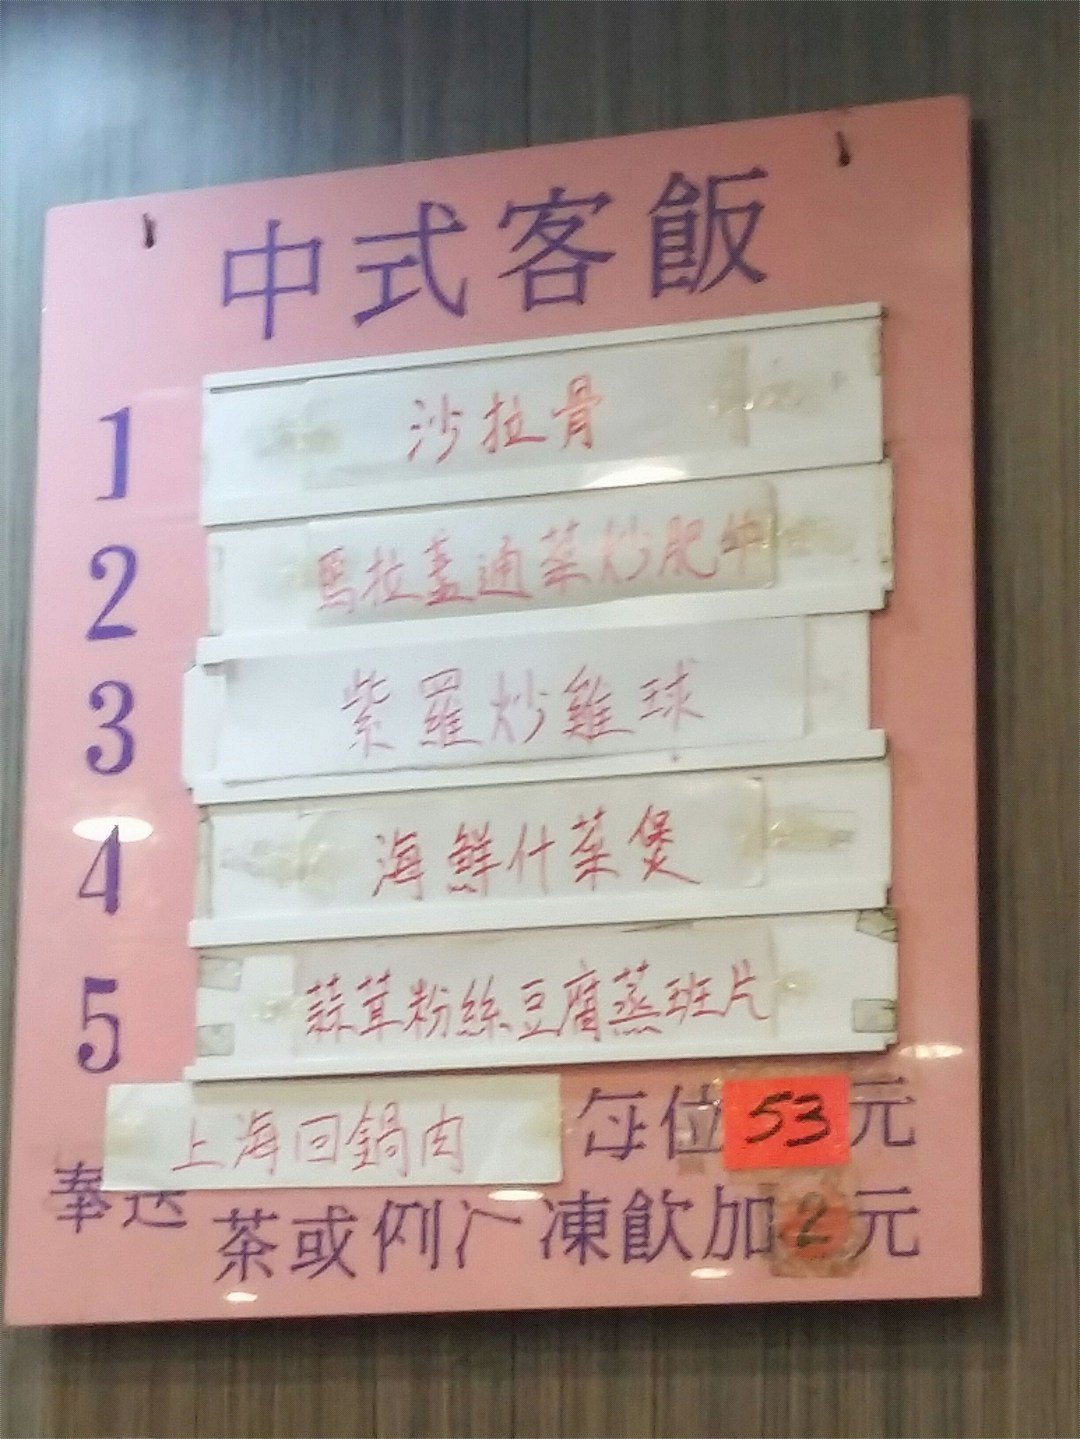 中式客飯
1 沙拉骨
2 馬拉盞通菜炒肥牛
3 紫羅炒雞球
4 海鮮什菜煲
5 蒜茸粉絲豆腐蒸班片
上海回鍋肉 每位53元
奉送 茶或例 凍飲加2元